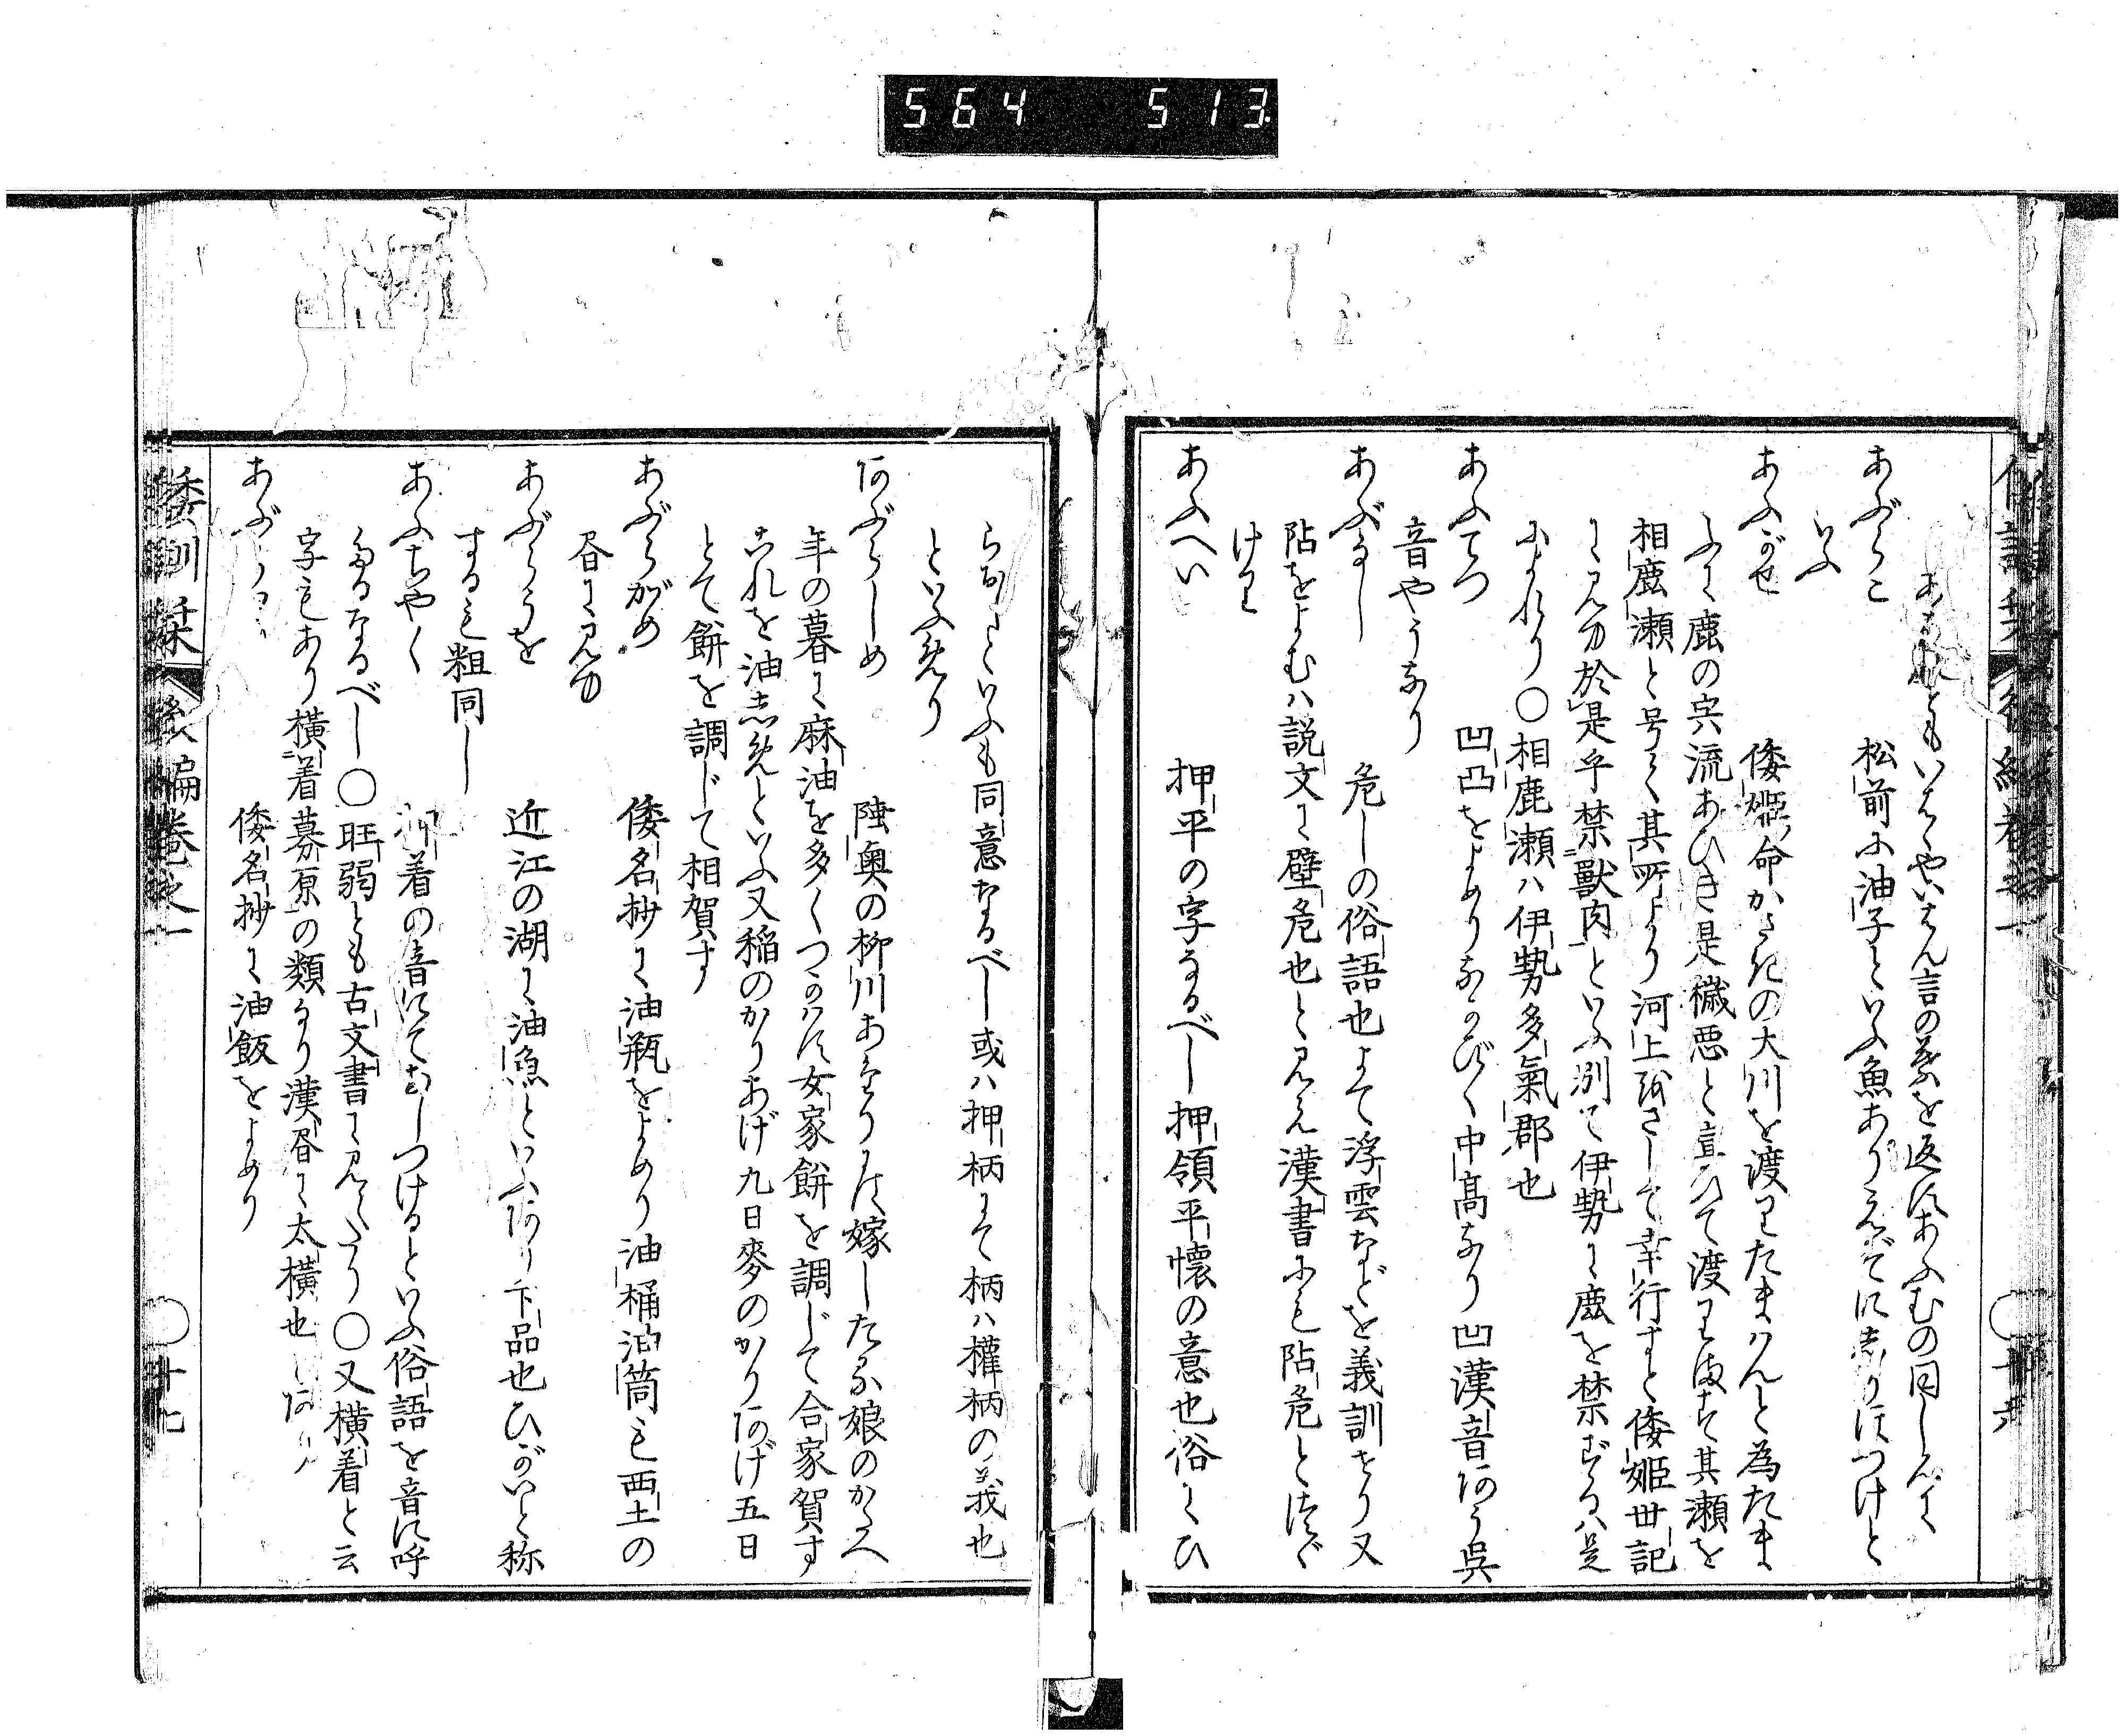 564 513
あぶらこ 松前に油子といふ魚ありえぞにしりにつけと
いふ
あふがせ 倭姫命かされの大川を渡りたまはんと為たま
ふに鹿の宍流あひき是穢悪と宣ひて渡りまさず其瀬を
相鹿瀬と号く其所より河上をさして幸行すと倭姫世記
に見ゆ於是乎禁獣肉といふ別て伊勢に鹿を禁ずるは是
によれり○相鹿瀬は伊勢多氣郡也
あふてつ 凹凸をよめりなかびく中高なり凹漢音あう呉
音やうなり
あぶなし 危しの俗語也よて浮雲などを義訓せり又
阽をよむは説文に壁危也と見え漢書にも阽危とつゞ
けり
あふへい 押平の字なるべし押領平懐の意也俗にひ
らがといふも同意なるべし或は押柄にて柄は権柄の義也
といへり
あぶらしめ 陸奥の柳川あたりにて嫁したる娘のかたへ
年の暮に麻油を多くつかはす女家餅を調じて合家賀す
これを油しめといふ又稲のかりあげ九日麥のかりあげ五日
とて餅を調じて相賀す
あぶらがめ 倭名抄に油瓶をよめり油桶油筒も西土の
書に見ゆ
あぶらうを 近江の湖に油魚といふあり下品也ひがいと称
するも粗同し
あふちやく 押着の音にておしつけるといふ俗語を音に呼
たるなるべし○旺弱とも古文書に見えたり○又横着と云
字もあり横着募原の類なり漢書に太横也
倭名抄に油飯をよめり
倭訓栞 後編巻之一 ○十七